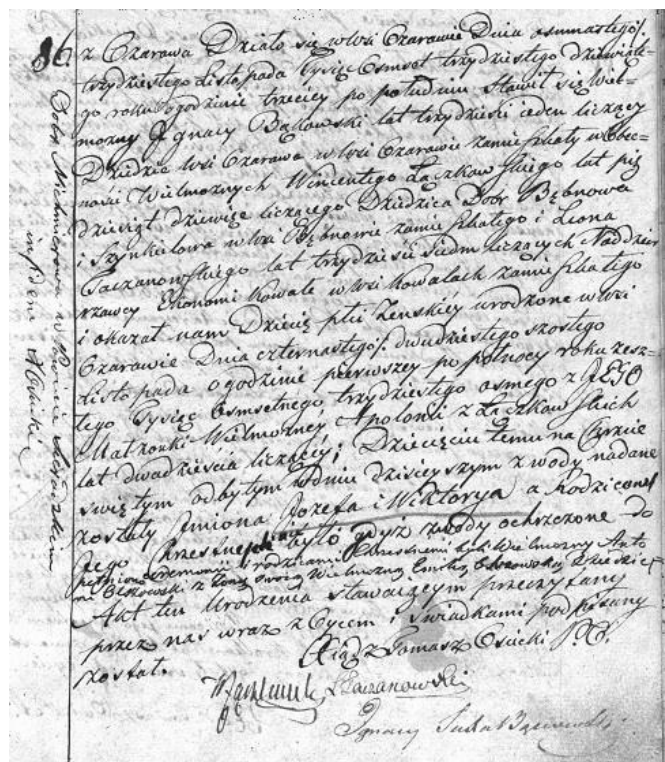 86
z Czarawa Działo się w Wsi Czarawie Dnia osmnastego/
trzydziestego Listopada Tysiąc Osmset trzydziestego dziewiąte=
go roku o godzinie trzeciey po południu stawił się Wiel=
możny Jgnacy Bąkowski lat trzydzieści ieden liczący
Dziedzic Wsi Czarawa w Wsi Czarawie zamieszkały w obec=
ności Wielmożnych Wincentego Łączkowskiego lat pięć
dziesiąt dziewięć liczącego Dziedzica Dobr Bębnowa
i Szynkielowa w Wsi Bębnowie zamieszkałego i Leona
Taczanowskiego lat trzydzieści siedm liczących Naddzier
rzawcy Ekonomi Kowale w Wsi Kowalach zamieszkałego
i okazał nam Dziecię płci Zenskiéy urodzone w Wsi
Czarawie Dnia czternastego/: dwudziestego szostego
Listopada o godzinie pierwszey po północy roku zesz=
łego Tysiąc Osmsetnego trzydziestego osmego z JEGO
Małżonki Wielmożnéy Apolonii z Łączkowskich
lat dwadzieścia liczącéy; Dziecięciu temu na Chrzcie
świętym odbytym w dniu dzisieyszym z wody nadane
zostały Jmiona Jozefa i Wiktorya a Rodzicami
Jego Chrzestnemi było gdyż z wody ochrzczone do
ceremonii rodzicami Chrzestnemi byli Wielmożny Anto
ni z Zoną swoią Wielmożną Emilią
Akt ten Urodzenia stawaiącym przeczytany
przez nas wraz z Oycem i swiadkami podpisany
został.
Xiądz Tomasz Osiecki
L Taczanowski
Jgnacy
Dobr w